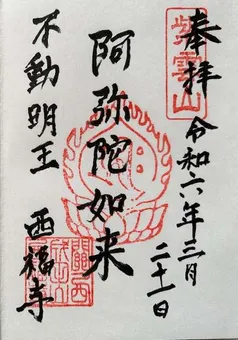 奉拝
紫雲山
令和六年三月二十一日
阿弥陀如来
不動明王
西福寺